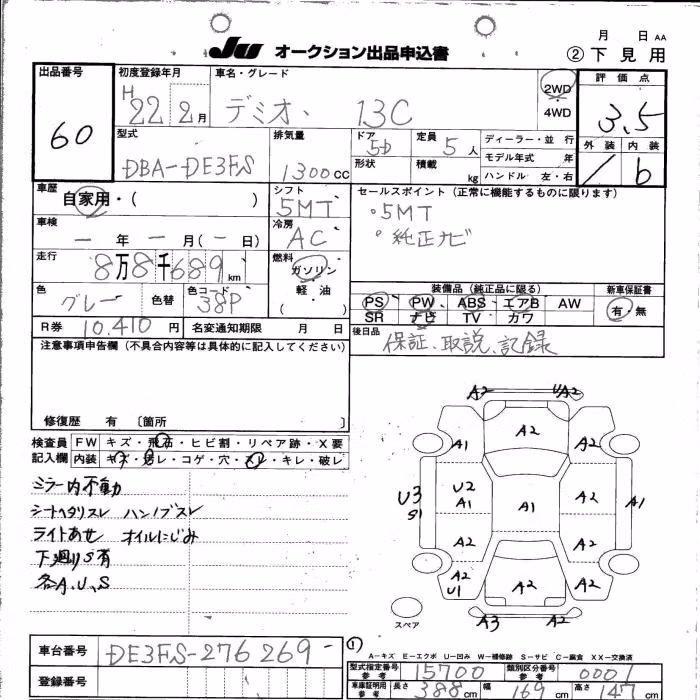 月 日 AA
JU オークション出品申込書 ②下見用
出品番号 60
初度登録年月 H22年2月
車名・グレード デミオ、 13C
2WD
4WD
評価点 3.5
外装 内装
6
型式 DBA-DE3FS
排気量 1300cc
ドア 5D
形状
定員 5人
積載 kg
ディーラー・並行
モデル年式 年
ハンドル 左・右
車歴 自家用・( )
シフト 5MT
セールスポイント(正常に機能するものに限ります)
・5MT
・純正ナビ
車検 ー年ー月(ー日)
冷房 AC
走行 8万8千689km
燃料 ガソリン
軽・油
( )
色 グレー 色替
色コード 38P
装備品(純正品に限る)
PS PW ABS エアB AW
SR ナビ TV カワ
新車保証書
有・無
R券 10,410円
名変通知期限 月 日
後日品 保証、取説、記録
注意事項申告欄(不具合内容等は具体的に記入してください)
修復歴 有 〔箇所 〕
検査員 FW キズ・飛石・ヒビ割・リペア跡・X要
記入欄 内装 キズ・汚レ・コゲ・穴・スレ・キレ・破レ
ミラー内不動
シートヘタリスレ ハンノブスレ
ライトあせ オイルにじみ
下廻りS有
各A、U、S
A2 UA2
A1 A2 A2
U3 S1 U2 A1 A1 A2 A1
A2 A2
A2 U1 A2 A2
A3 A2
スペア
車台番号 DE3FS-276269
登録番号
①
A－キズ E－エクボ U－凹み W－補修跡 S－サビ C－腐食 XX－交換済
型式指定番号 参考 15700
類別区分番号 参考 0001
車庫証明用 参考 長さ 388cm 幅 169cm 高さ 147cm